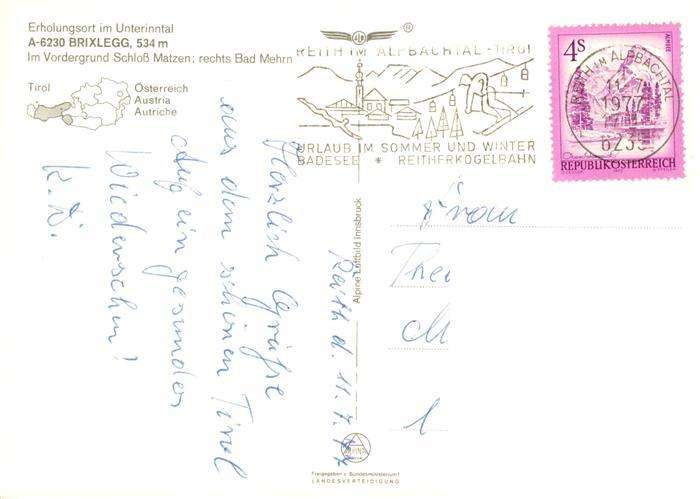 Erholungsort im Unterinntal
A-6230 BRIXLEGG, 534 m
Im Vordergrund Schloß Matzen; rechts Bad Mehrn
Tirol
Österreich
Austria
Autriche
REITH IM ALPBACHTAL - TIROL
URLAUB IM SOMMER UND WINTER
BADESEE * REITHERKOGELBAHN
4S
ALMSEE
REITH IM ALPBACHTAL
11.-7.
1977
6235
REPUBLIK ÖSTERREICH
Reith d. 11.7.77
Herzlich Grüße
aus dem schönen Tirol
Auf ein gesundes
Wiedersehn!
K. W.
Frau
Alpine Luftbild Innsbruck
ALPINE
Freigegeben v. Bundesministerium f.
LANDESVERTEIDIGUNG